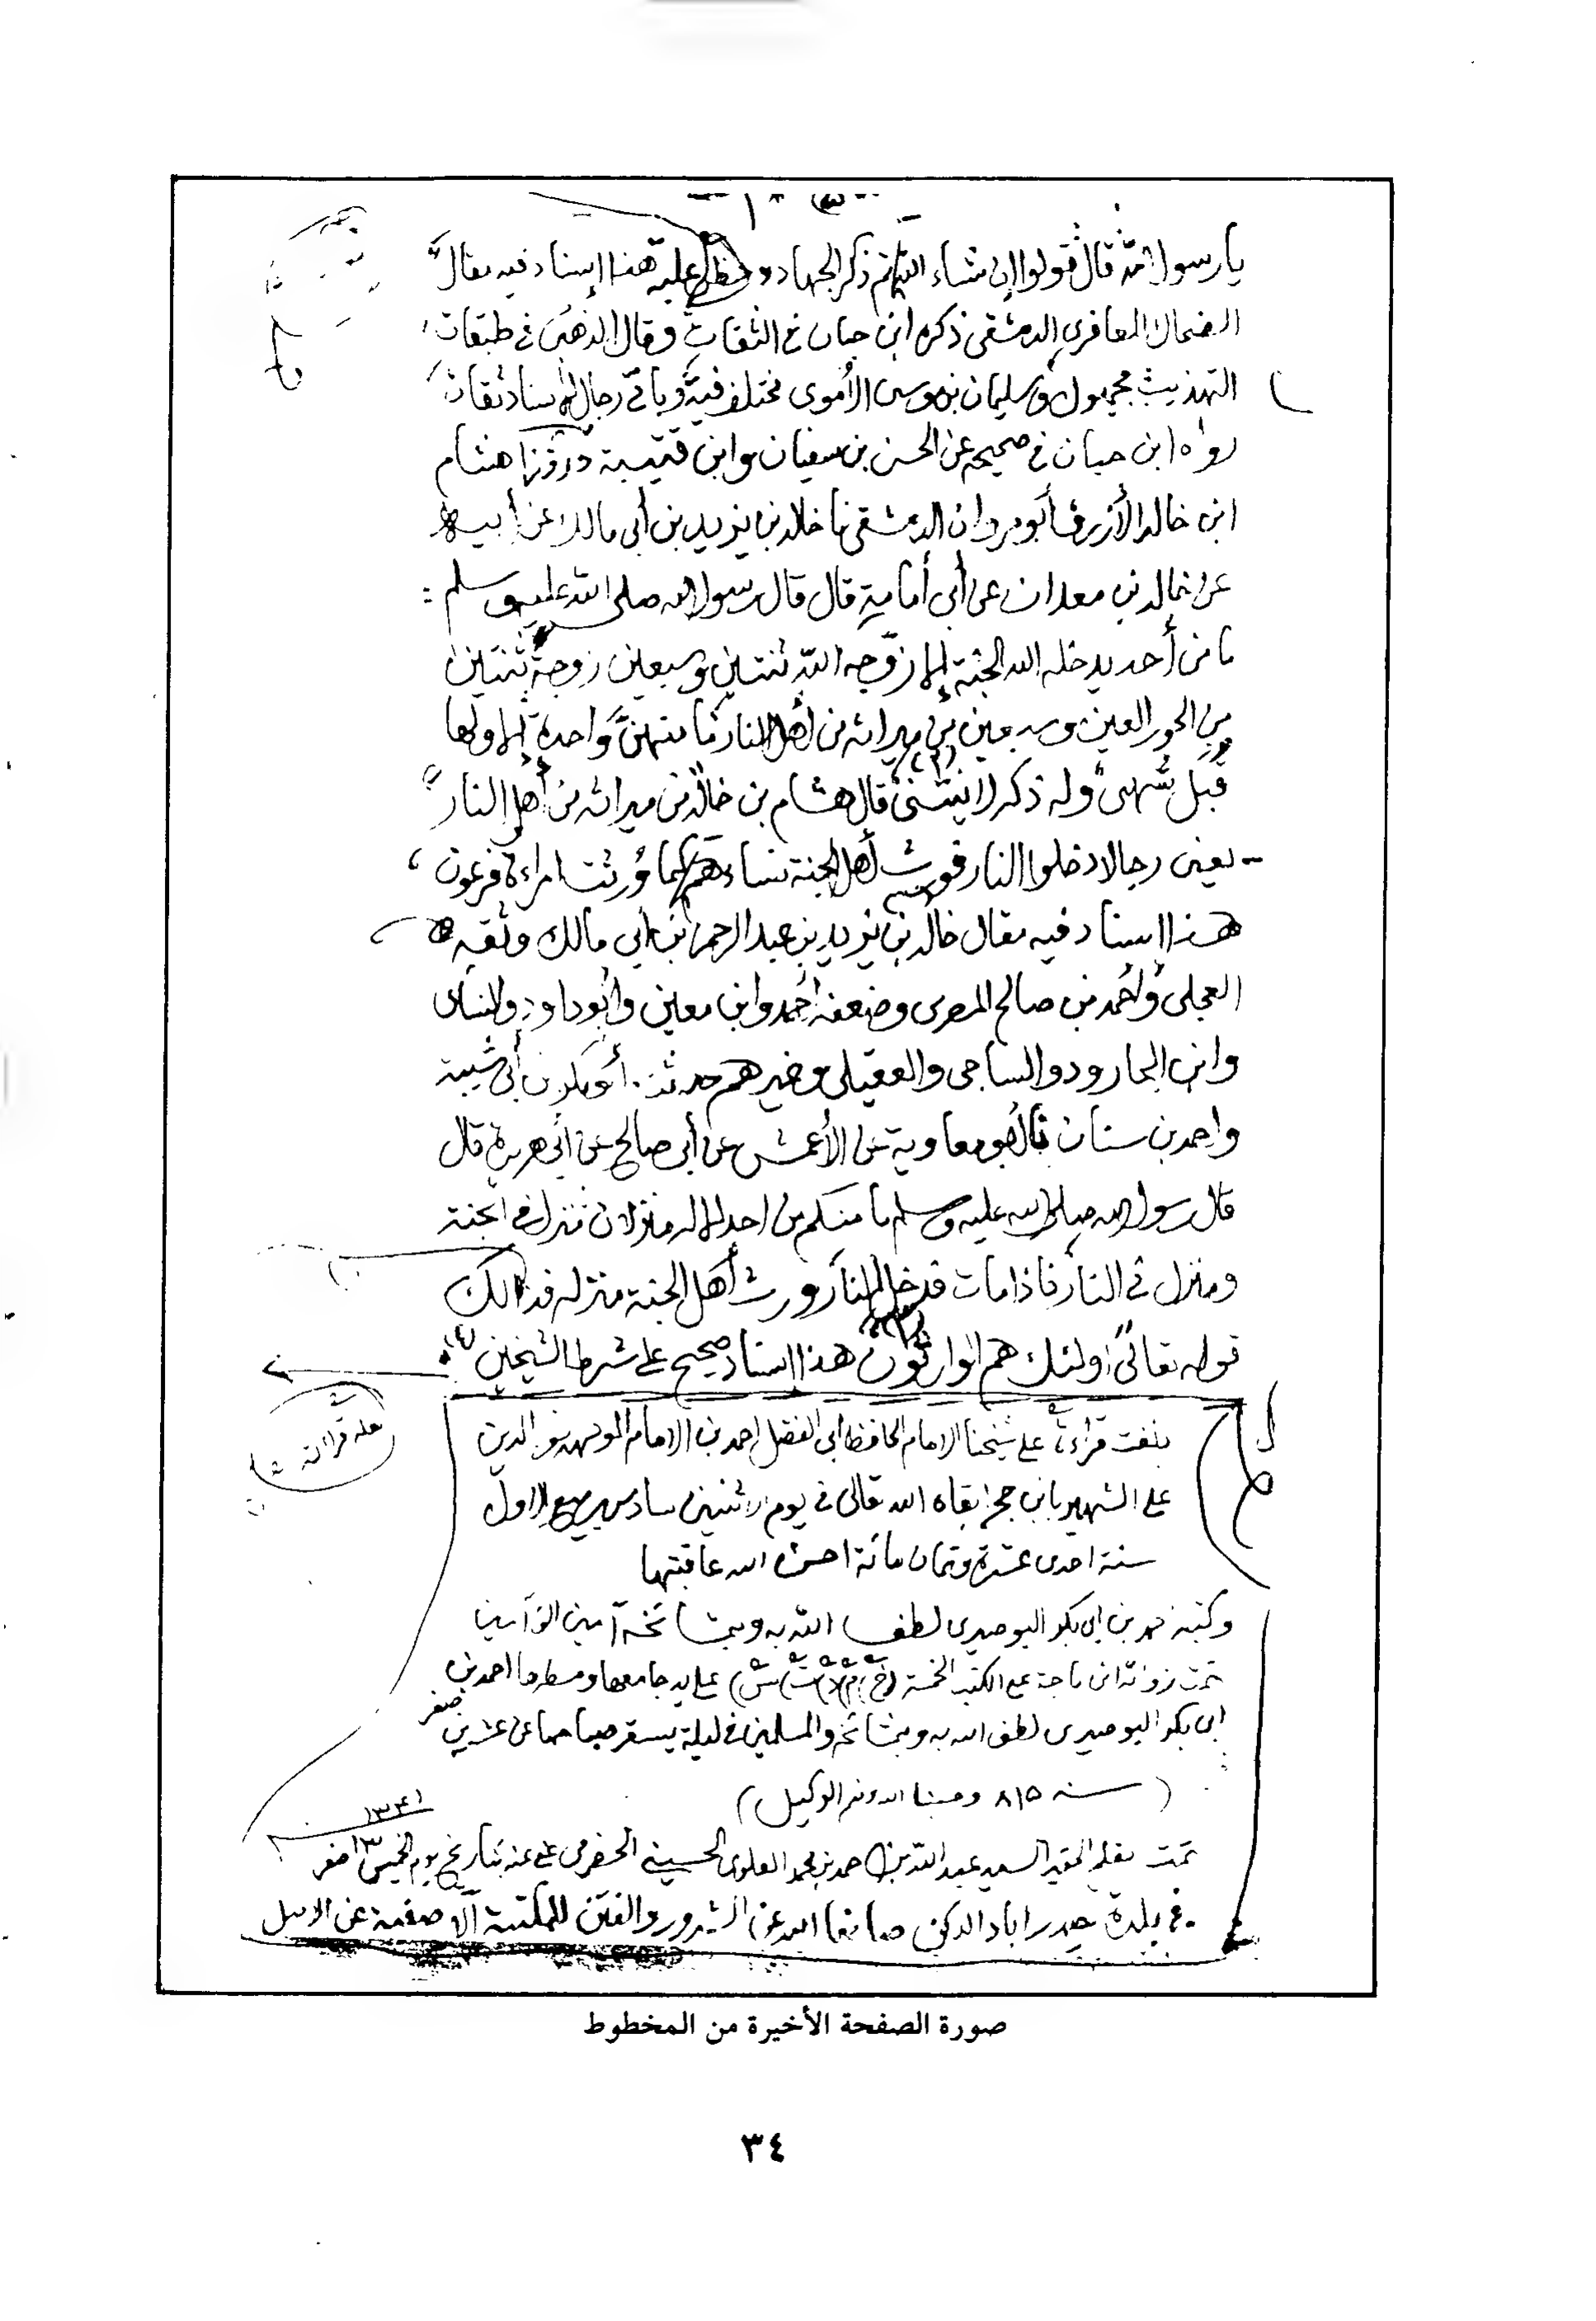 يا رسول الله قال قولوا إن شاء الله ثم ذكر الجهاد وحظ عليه هذا إسناد فيه مقال
الضحاك المعافري الدمشقي ذكره ابن حبان في الثقات وقال الذهبي في طبقات
التهذيب مجهول وسليمان بن موسى الأموي مختلف فيه وباقي رجال الإسناد ثقات
رواه ابن حبان في صحيحه عن الحسن بن سفيان وابن قتيبة هشام
ابن خالد الأزرق أبو مروان الدمشقي نا خالد بن يزيد بن أبي مالك عن أبيه
عن خالد بن معدان عن أبي أمامة قال قال رسول الله صلى الله عليه وسلم :
ما من أحد يدخله الله الجنة إلا زوّجه الله ثنتين وسبعين زوجة ثنتين
من الحور العين وسبعين من ميراثه من أهل النار ما منهنّ واحدة إلا ولها
قبل شهي وله ذكر لا ينثني قال هشام بن خالد من ميراثه من أهل النار
يعني رجالا دخلوا النار فورث أهل الجنة نساءهم كما ورثت امراءة فرعون
هذا إسناد فيه مقال خالد بن يزيد بن عبد الرحمن بن أبي مالك وثقه
العجلي وأحمد بن صالح المصري وضعفه أحمد وابن معين وأبو داود والنسائي
وابن الجارود والساجي والعقيلي وغيرهم حدثنا أبو بكر بن أبي شيبة
واحمد بن سنان قالا نا أبو معاوية عن الأعمش عن أبي صالح عن أبي هريرة قال
قال رسول الله صلى الله عليه وسلم ما منكم من احد إلا له منزلان منزل في الجنة
ومنزل في النار فاذا مات فدخل النار ورث أهل الجنة منزله فذالك
قوله تعالى أولئك هم الوارثون هذا إسناد صحيح على شرط الشيخين
بلغت قراءة على شيخنا الامام الحافظ أبي الفضل احمد بن الامام نور الدين
على الشهير بابن حجر ابقاه الله تعالى في يوم الاثنين سادس ربيع الاول
سنة احدى عشرة وثمان مائة احسن الله عاقبتها
وكتبه احمد بن ابي بكر البوصيري لطف الله به وبمشائخه آمين
تمت زوائد ابن ماجة على الكتب الخمسة (خ) (م) (د) (ت) (س) على يد جامعها ومسطرها احمد بن
ابي بكر البوصيري لطف الله به وبمشائخه والمسلمين في ليلة يسفر صباحها عن عشرين صفر
( سنه ٨١٥ وحسبنا الله ونعم الوكيل )
تمت بقلم الحقير السيد عبد الله بن احمد بن محمد العلوي الحسيني الحضرمي عفى عنه بتاريخ يوم الخميس ١٣ صفر
١٣٤١
في بلدة حيدراباد الدكن صانها الله عن الشرور والفتن للمكتبة الآصفية عن الاصل
صورة الصفحة الأخيرة من المخطوط
٣٤